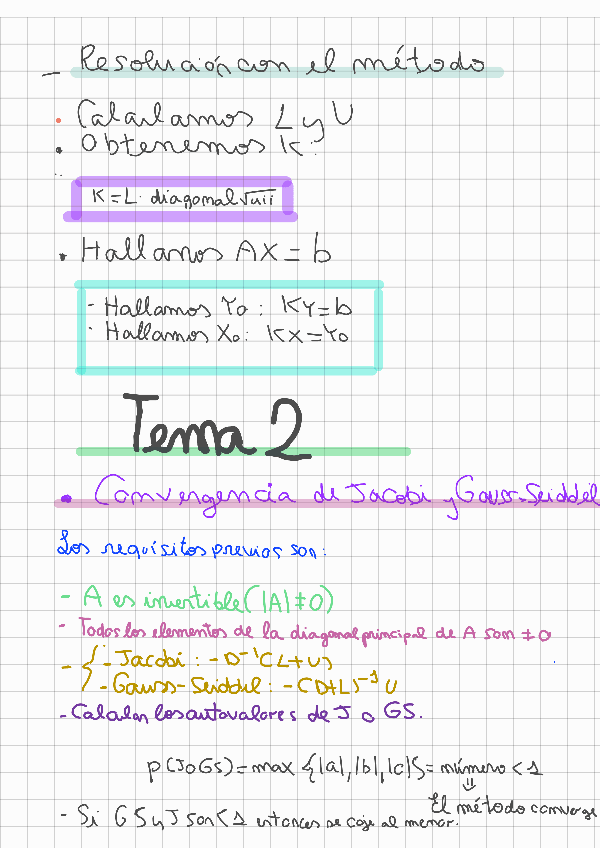 - Resolución con el método
• Calculamos L y U
• Obtenemos K:
K = L · diagonal √uii
• Hallamos AX = b
- Hallamos Yo : KY = b
- Hallamos Xo : KX = Yo
Tema 2
• Convergencia de Jacobi y Gauss-Seiddel
Los requisitos previos son:
- A es invertible (|A| ≠ 0)
- Todos los elementos de la diagonal principal de A son ≠ 0
- { - Jacobi : -D⁻¹(L+U)
- Gauss-Seiddel : -(D+L)⁻¹ U
- Calcular los autovalores de J o GS.
p(J o GS) = max {|a|, |b|, |c|} = número < 1
⇓
El método converge
- Si GS y J son < 1 entonces se coje al menor.